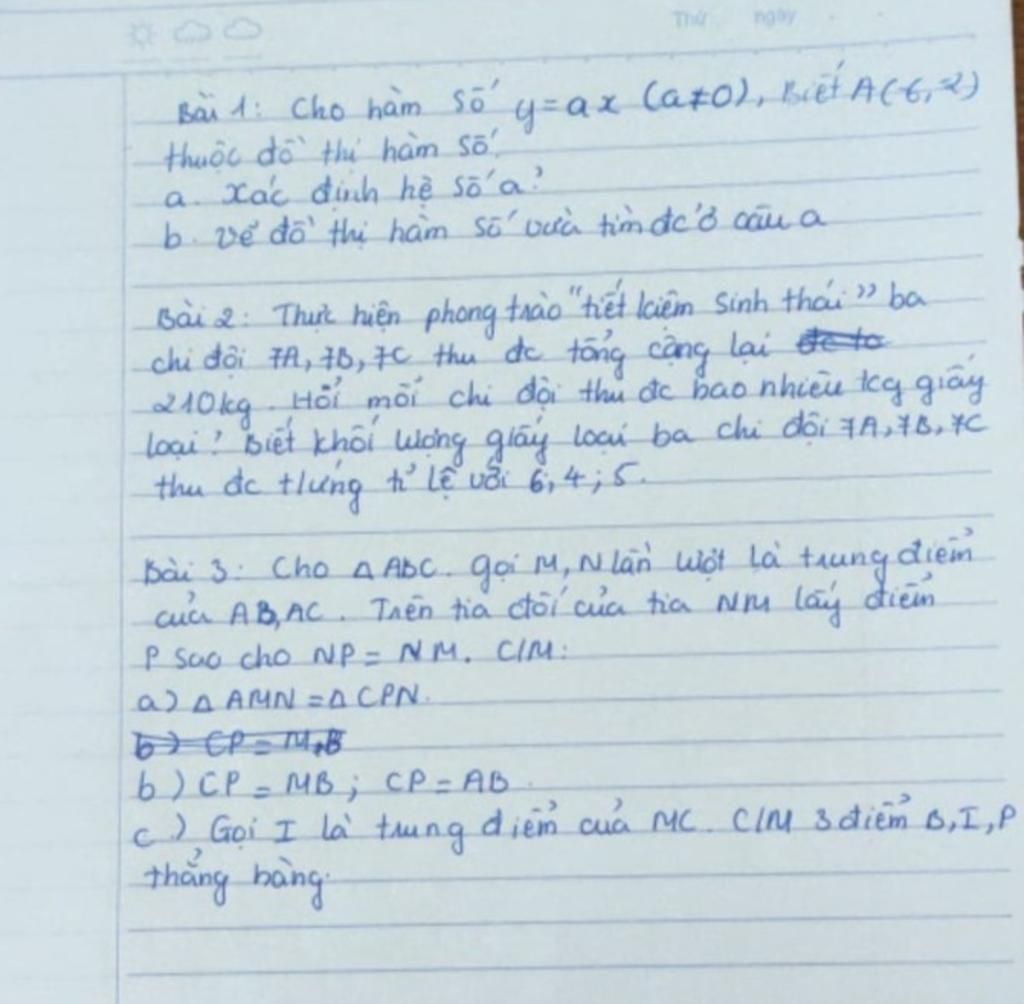 Thứ ngày
Bài 1: Cho hàm số y = ax (a≠0), Biết A(-6,-2)
thuộc đồ thị hàm số.
a. Xác định hệ số a?
b. vẽ đồ thị hàm số vừa tìm đc ở câu a
Bài 2: Thực hiện phong trào "tiết kiệm sinh thái" ba
chi đội 7A, 7B, 7C thu đc tổng cộng lại
210kg. Hỏi mỗi chi đội thu đc bao nhiêu kg giấy
loại? Biết khối lượng giấy loại ba chi đội 7A, 7B, 7C
thu đc t/ứng tỉ lệ với 6; 4; 5.
Bài 3: Cho △ ABC. gọi M, N lần lượt là trung điểm
của AB, AC. Trên tia đối của tia NM lấy điểm
P sao cho NP = NM. C/M:
a) △ AMN = △ CPN.
b) CP = MB
b) CP = MB; CP = AB.
c) Gọi I là trung điểm của MC. C/M 3 điểm B, I, P
thẳng hàng.